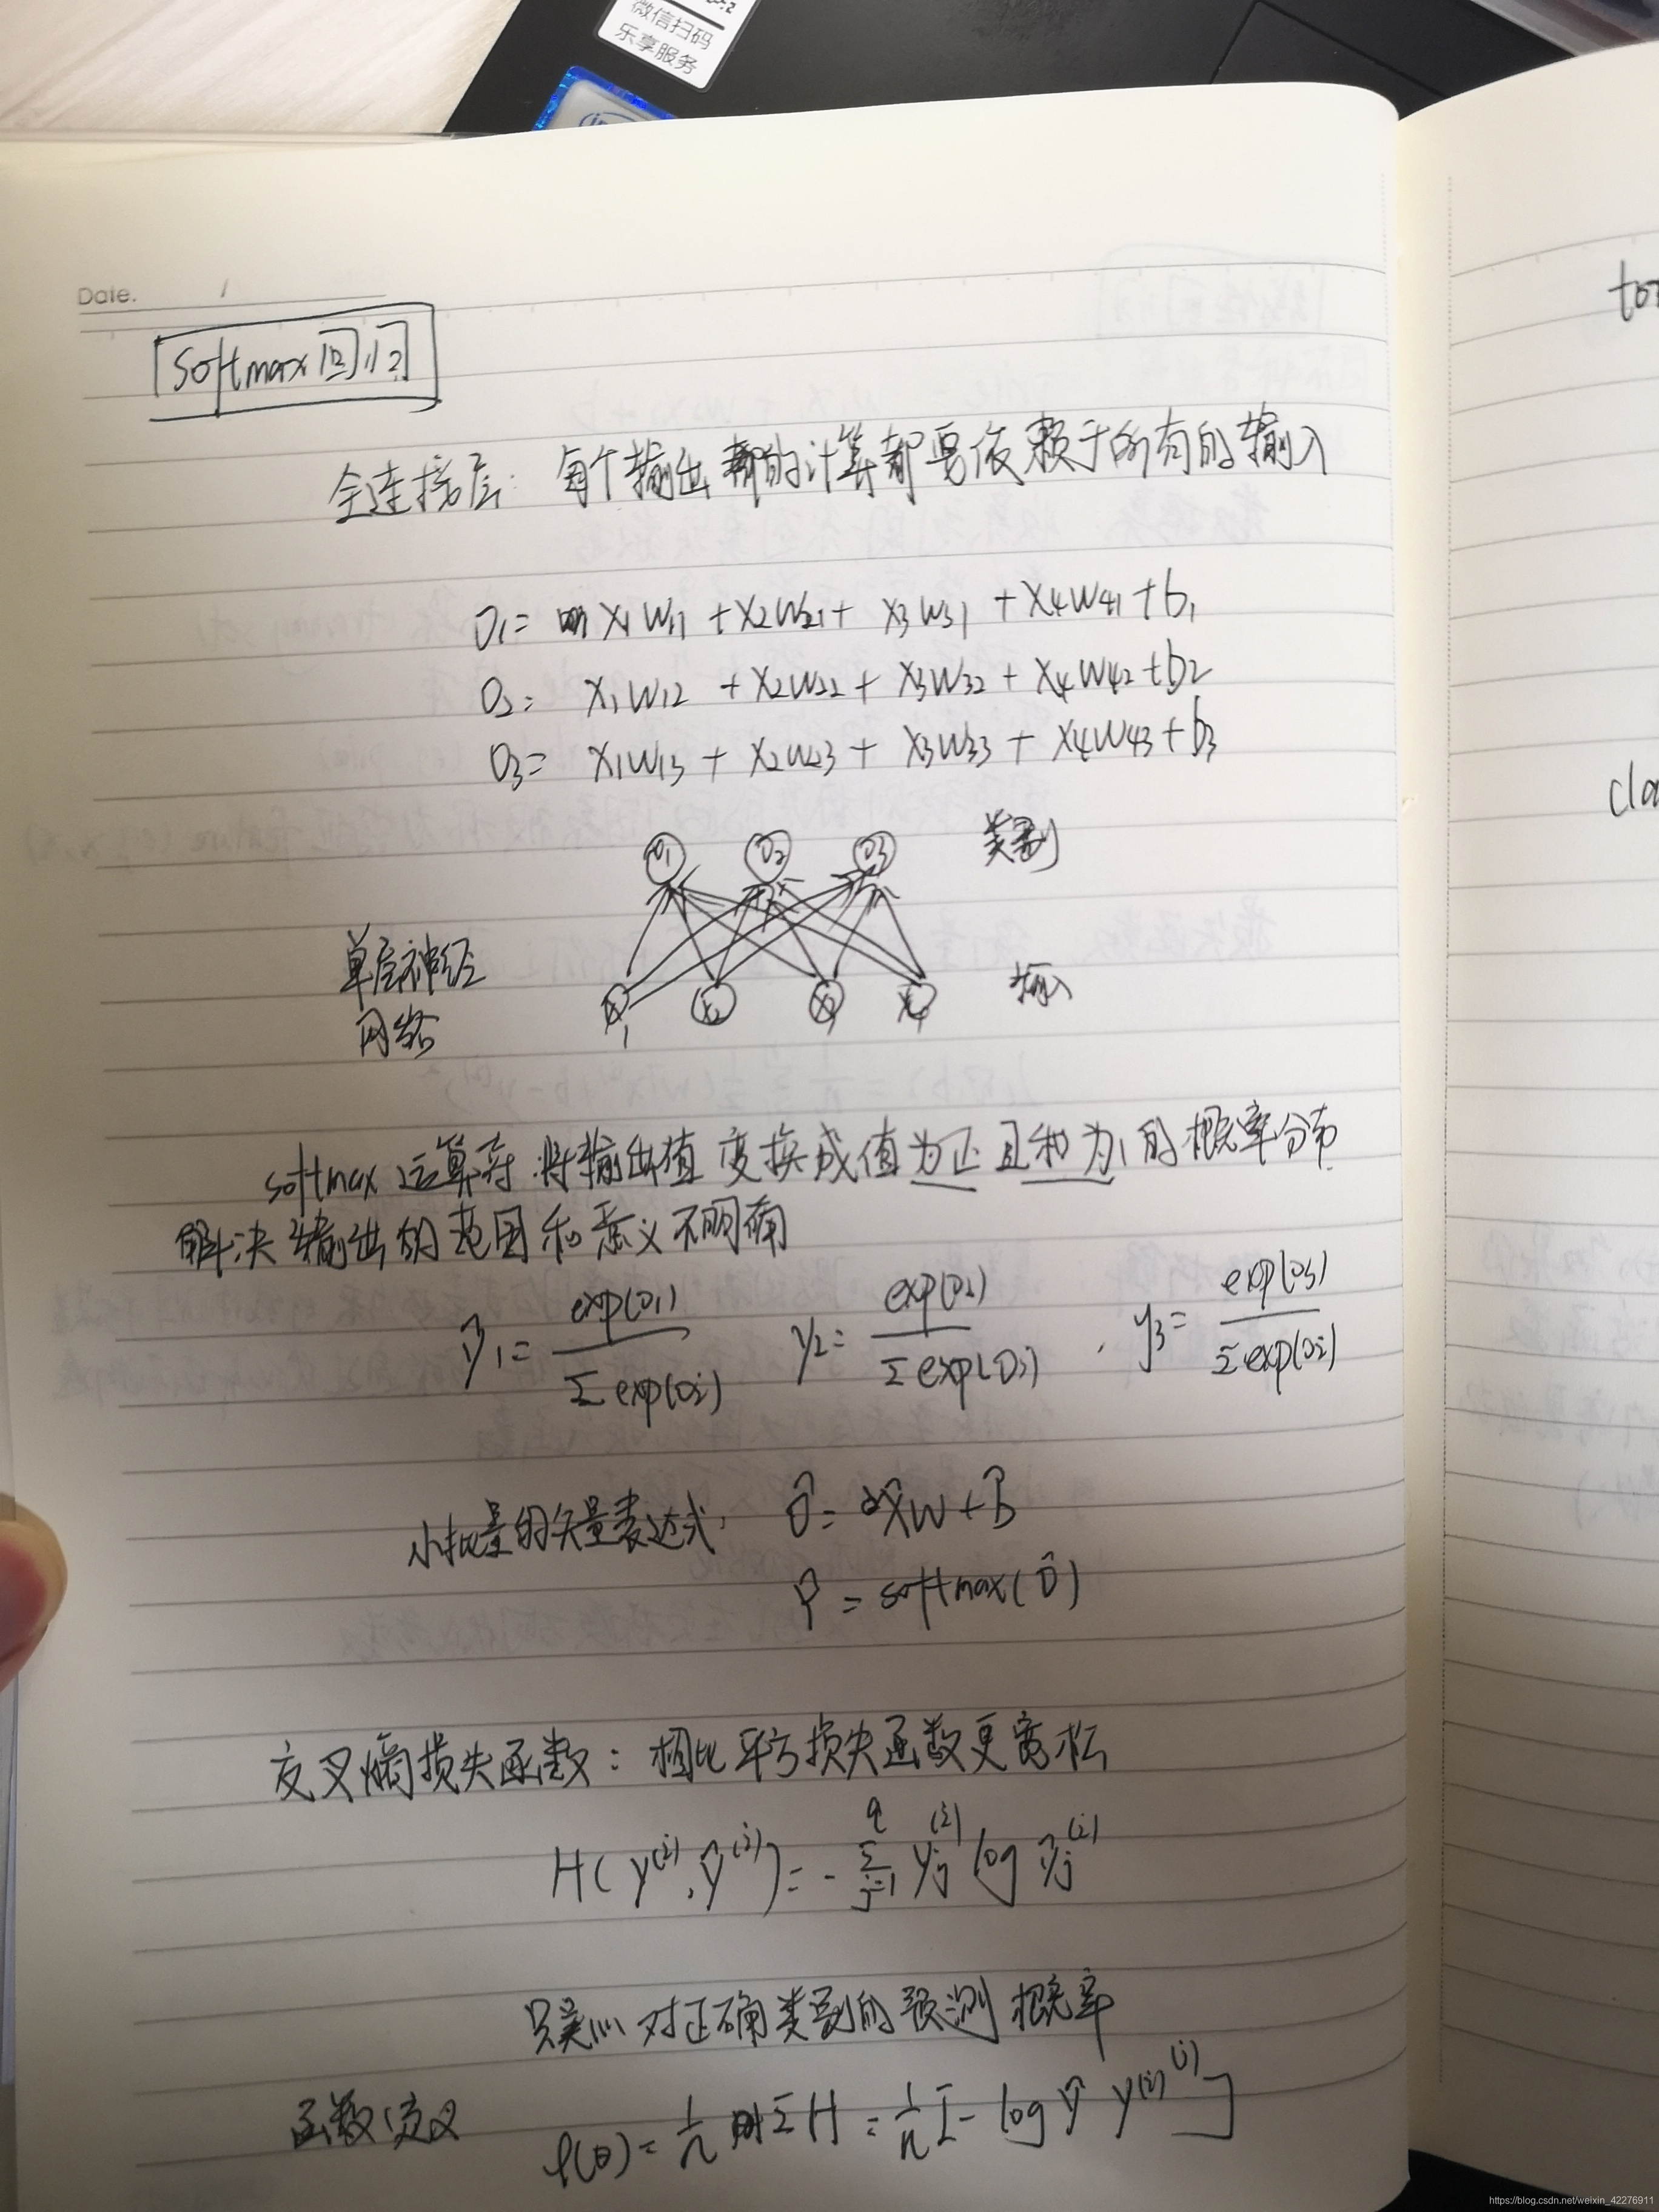 微信扫码
乐享服务
Date.
softmax回归
全连接层: 每个输出的计算都要依赖于所有的输入
O1= X1W11 + X2W21 + X3W31 + X4W41 + b1
O2= X1W12 + X2W22 + X3W32 + X4W42 + b2
O3= X1W13 + X2W23 + X3W33 + X4W43 + b3
O1 O2 O3 类别
单层神经
网络
X1 X2 X3 X4 输入
softmax 运算符 将输出值变换成值为正且和为1的概率分布
解决输出的范围和意义不明确
ŷ1= exp(O1) / Σ exp(Oi) y2= exp(O2) / Σ exp(Oi) , y3= exp(O3) / Σ exp(Oi)
小批量的矢量表达式: Ô= X̂W + B̂
Ŷ = softmax(Ô)
交叉熵损失函数: 相比平方损失函数更宽松
H(y^(i), ŷ^(i)) = - Σ_{j=1}^{q} y_j^(i) log ŷ_j^(i)
只关心对正确类别的预测概率
函数定义 ℓ(θ) = 1/n Σ H = 1/n Σ - log ŷ y^(i)^(i)
tor
cla
https://blog.csdn.net/weixin_42276911